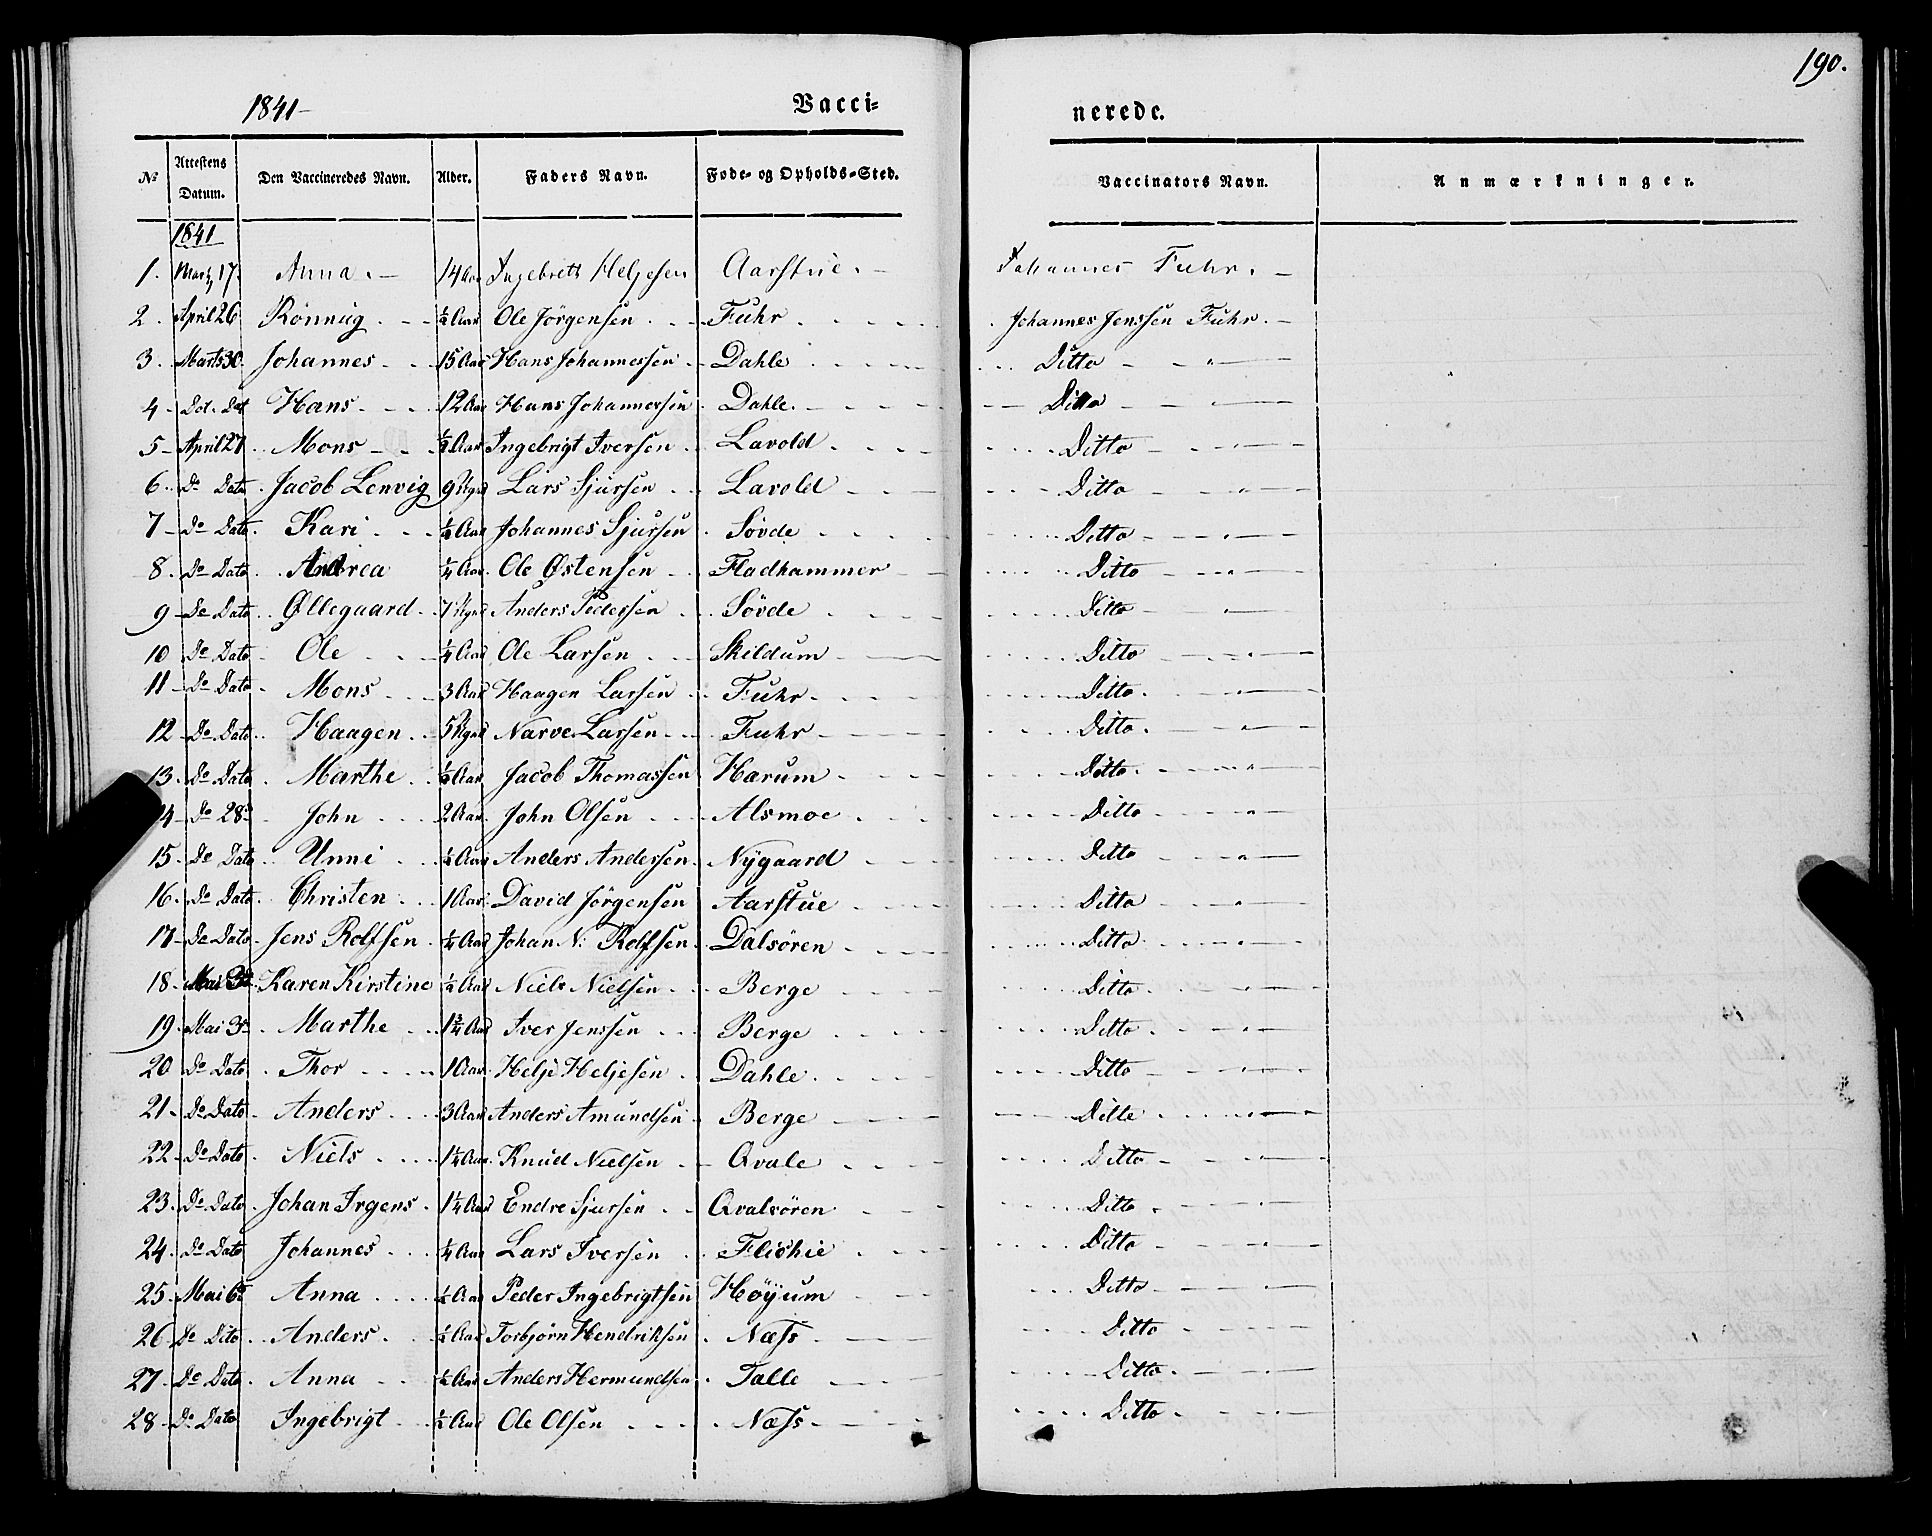 190.
1841- Vacci= nerede.
No Attestens Datum. Den Vaccineredes Navn. Alder. Faders Navn. Fode- og Opholds-Sted. Vaccinators Navn. Anmærkninger.
1841
1. Marts 17. Anna. - 14 Aar Ingebrett Heljesen Aarstue. - Johannes Fuhr. -
2. April 26 Rönnug. - - ½ Aar Ole Jörgensen Fuhr. Johannes Jenssen Fuhr. -
3. Marts 30. Johannes - 15 Aar Hans Johannessen Dahle Ditto
4 - Dot. Dat Hans 12 Aar Hans Johannessen Dahle. Ditto
5 - April 27 Mons ½ Aar Ingebrigt Iversen Lavold Ditto
6. Do Dato Jacob Lenvig 9 Lars Sjursen Lavold Ditto
7 - Do Dato. Kari ½ Aar Johannes Sjursen Sövde Ditto
8. Do Dato Andrea ¼ Aar. Ole Østensen Fladhammer Ditto
9 - Do Dato Øllegaard 7 Anders Pedersen Sövde Ditto
10 Do Dato Ole ¼ Aar Ole Larsen Skildum Ditto
11 - Do Dato Mons 3 Aar Haagen Larsen Fuhr Ditto
12 - Do Dato Haagen 5 Narve Larsen Fuhr Ditto
13. Do Dato Marthe ½ Aar Jacob Thomassen Harum Ditto
4 - Do 28 John 2 Aar John Olsen Alsmoe Ditto
15. Do Dato Unni Aar Anders Andersen Nÿgaard Ditto
16. Do Dato Christen 1 Aar David Jörgensen Aarstue Ditto
17 - Do Dato Jens Rolfsen ¼ Aar Johan N: Rolfsen Dalsören Ditto
18. Mai 3 Karen Kirstine ½ Aar Niels Nielsen Berge Ditto
19. Mai 3 Marthe 1¾ Aar Iver Jenssen Berge Ditto
20. Do Dato Thor 1 Aar Helje Heljesen Dahle Ditto
21. Do Dato Anders 3 Aar Anders Amundsen Berge Ditto
22. Do Dato Niels 1¼ Aar Knud Nielsen Qvale Ditto
23. Do Dato Johan Irgens 1¼ Aar Endre Sjursen Qvalsören Ditto
24. Do Dato Johannes ¼ Aar Lars Iversen Ditto
25. Mai 6 Anna ¼ Aar Peder Ingebrigtsen Høÿum Ditto
26. Do Dito Anders ¼ Aar Torbjørn Hendriksen Næss Ditto
27. Do Dato Anna Aar Anders Hermundsen Talle Ditto
28. Do Dato Ingebrigt ½ Aar Ole Olsen Næss Ditto